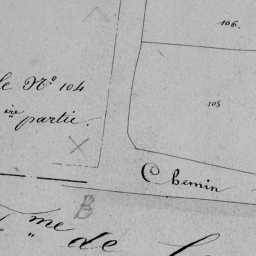 106.
le N.º 104
105
ère partie.
Chemin
B
me de